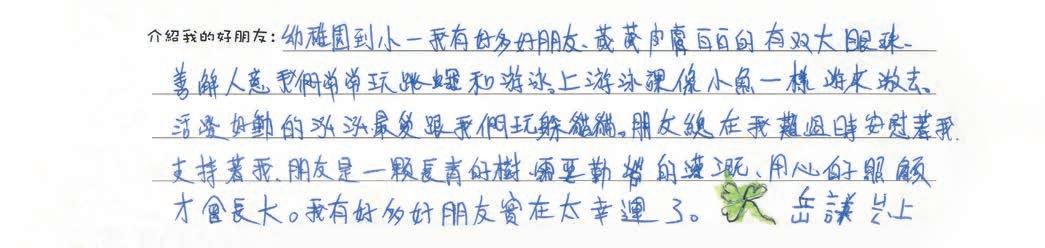 介紹我的好朋友：幼稚園到小一我有好多好朋友、葳葳皮膚百百的有双大眼珠、
善解人意我們常常玩跳繩和游泳。上游泳課像小魚一樣游來游去。
活潑好動的泓泓最愛跟我們玩躲貓貓。朋友總在我難過時安慰著我
支持著我、朋友是一顆長青的樹、需要勤勞的灌溉、用心的照顧
才會長大。我有好多好朋友實在太幸運了。 岳議 上